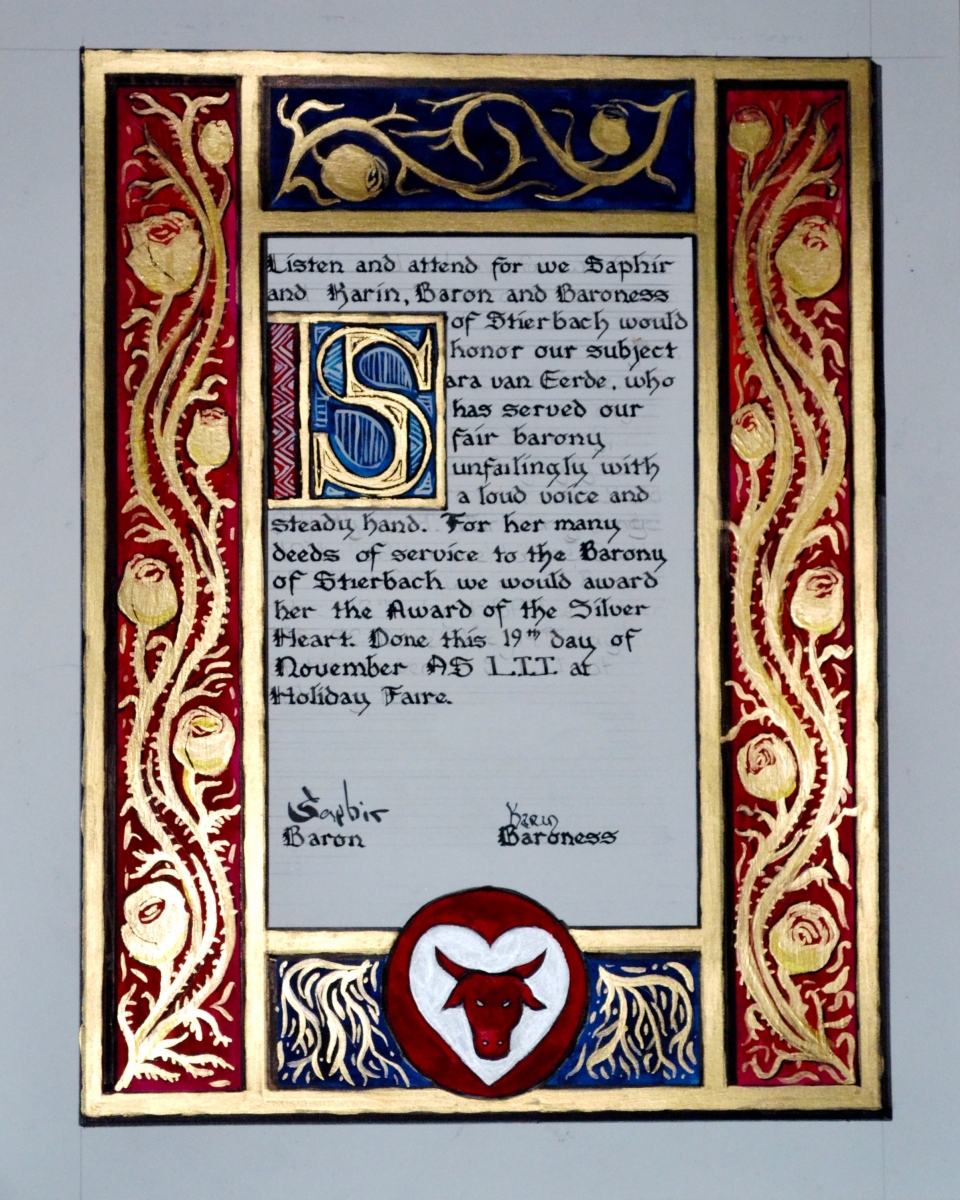 Listen and attend for we Saphir
and Karin, Baron and Baroness
of Stierbach would
honor our subject
S ara van Eerde, who
has served our
fair barony
unfailingly with
a loud voice and
steady hand. For her many
deeds of service to the Barony
of Stierbach we would award
her the Award of the Silver
Heart. Done this 19th day of
November AS LII at
Holiday Faire.
Saphir
Baron
Karin
Baroness